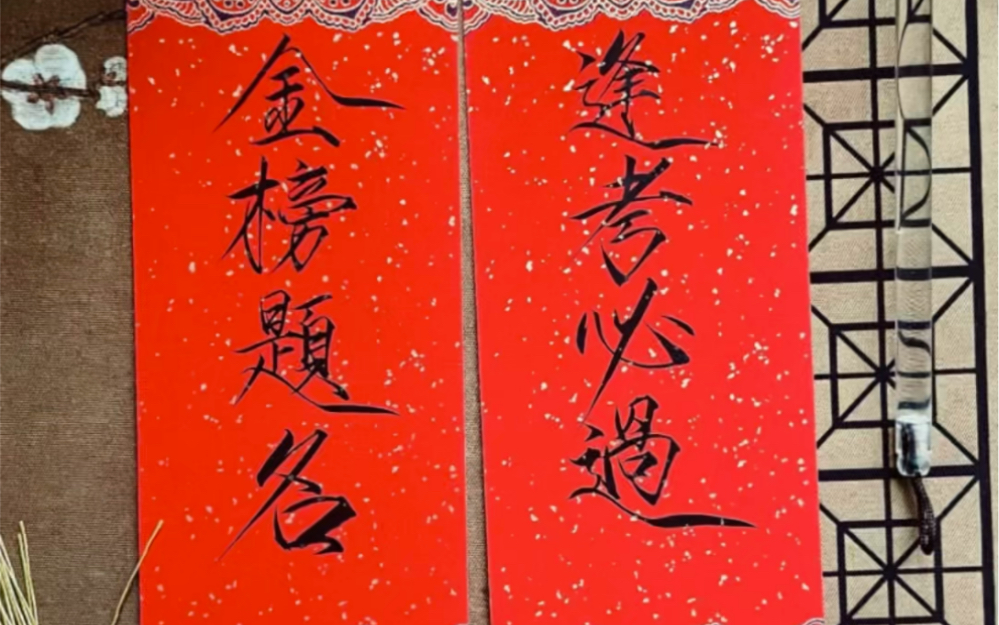 逢考必過
金榜題名